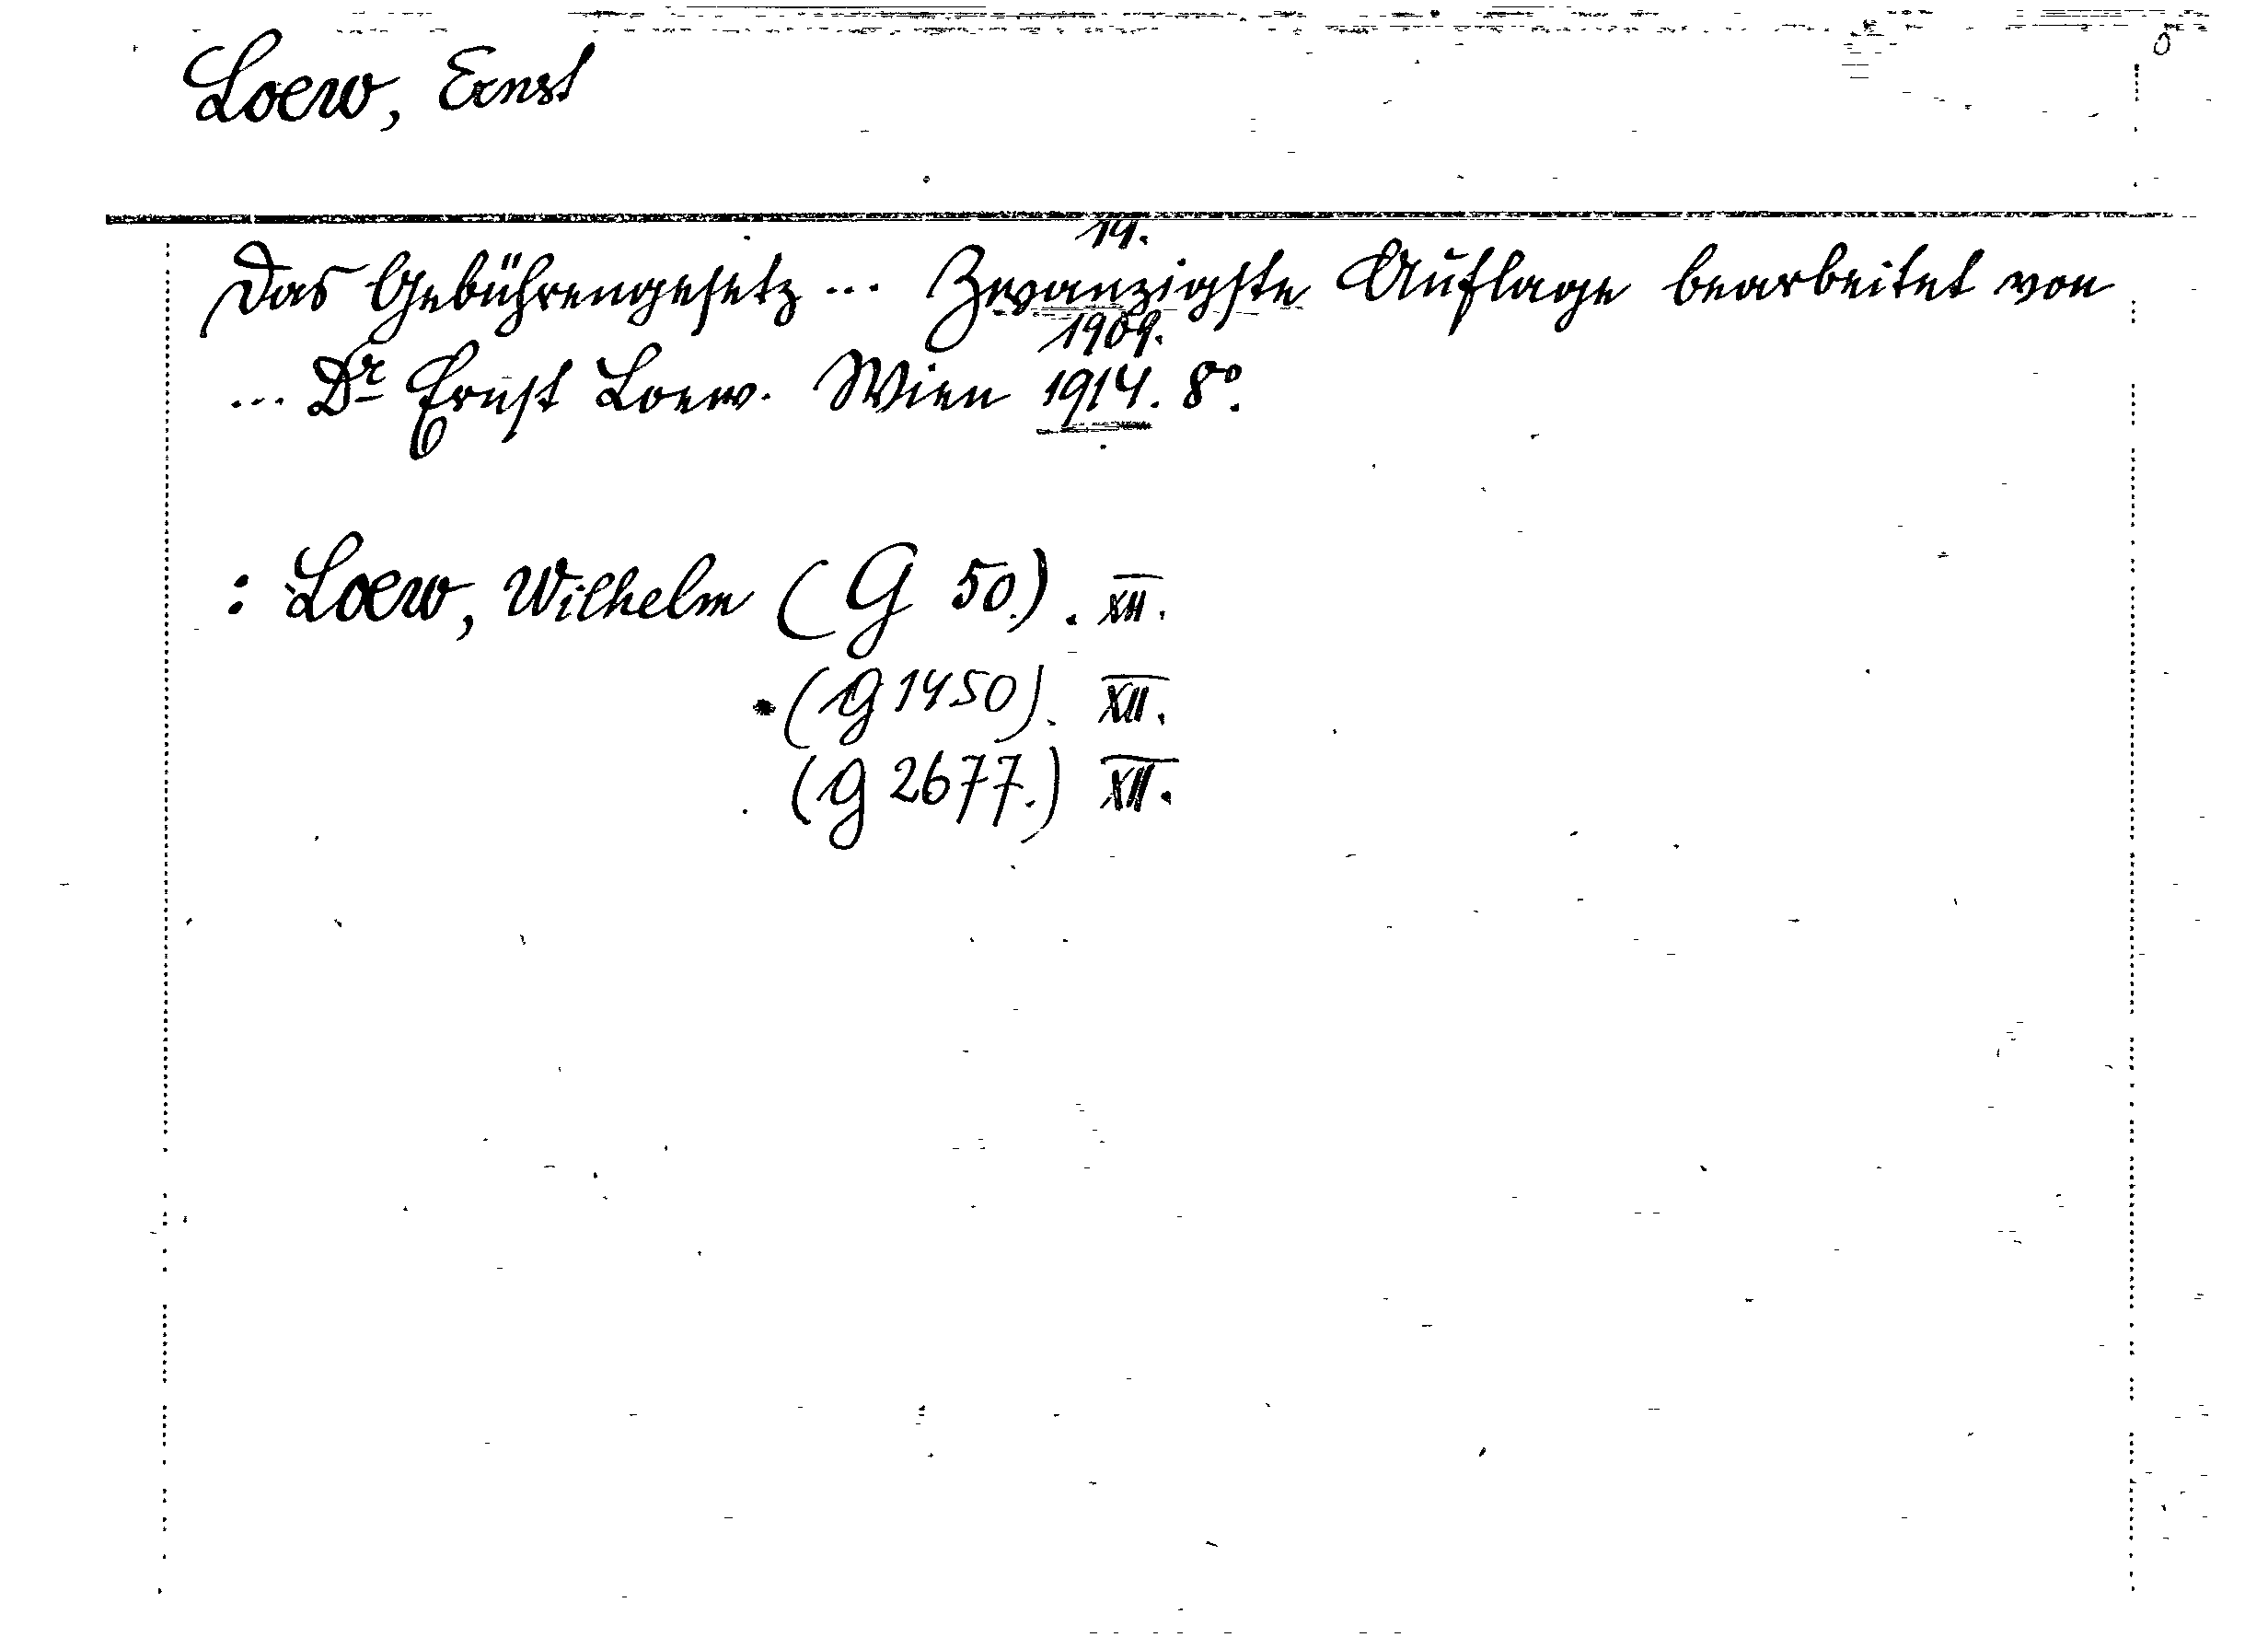 Loew, Ernst
19.
Das Gebührengesetz ... Zwanzigste Auflage bearbeitet von
1909.
... Dr Ernst Loew. Wien 1914. 8°.
: Loew, Wilhelm (G 50.). XII.
(G 1450). XII.
(G 2677.) XII.